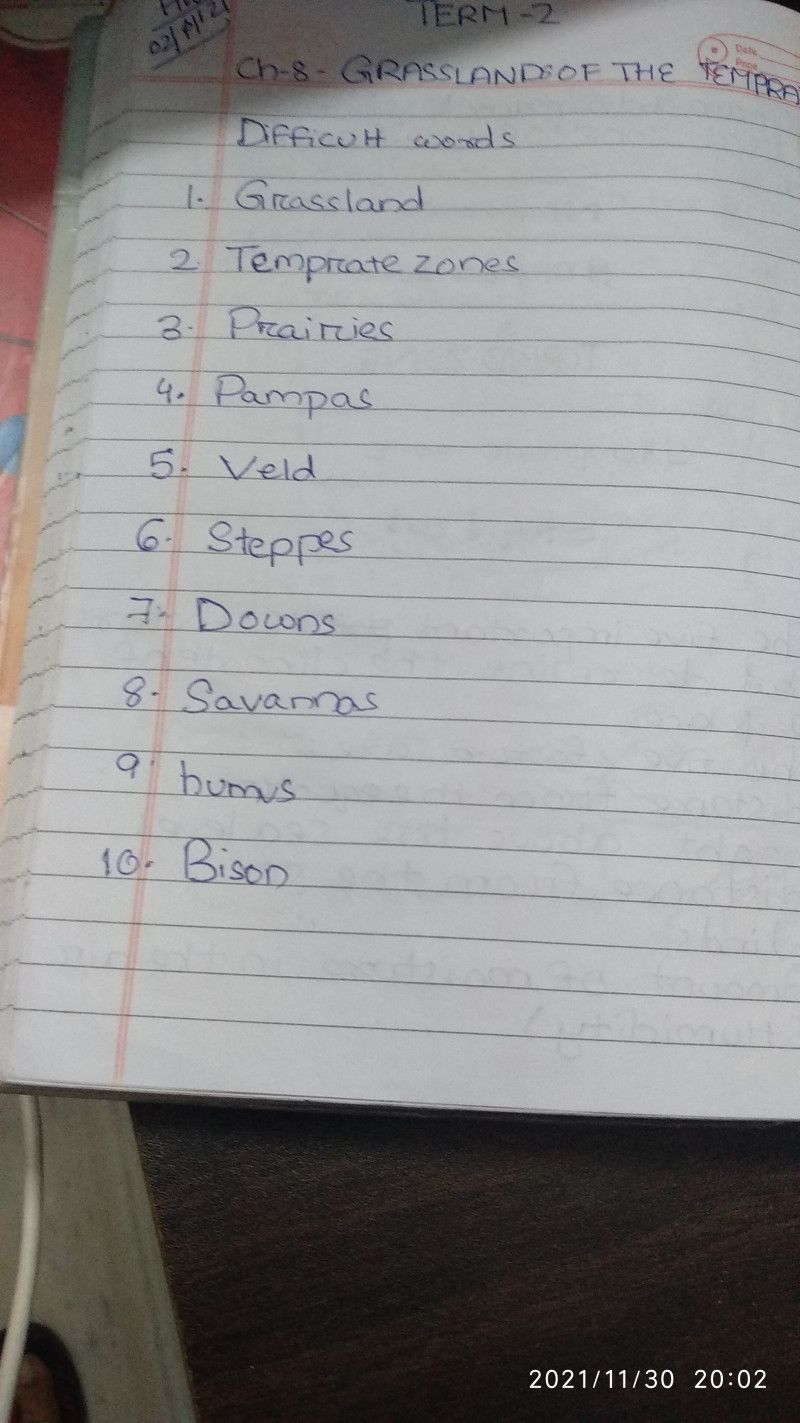 TERM-2
02/11/21
Date
Page
Ch-8- GRASSLANDS OF THE TEMPRA
Difficult words
1. Grassland
2. Temprate zones
3. Prairies
4. Pampas
5. Veld
6. Steppes
7. Downs
8. Savannas
9. humus
10. Bison
2021/11/30 20:02